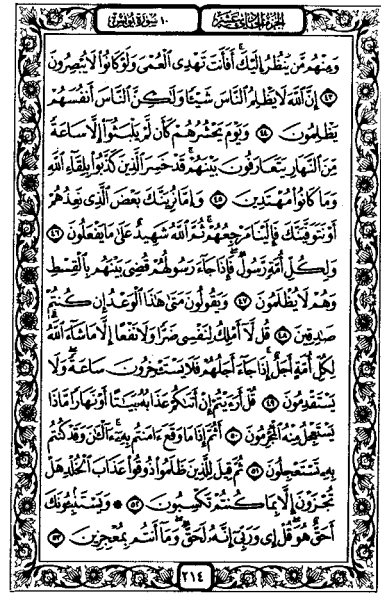 الجزء الحادي عشر ١٠ سورة يونس
وَمِنْهُم مَّن يَنظُرُ إِلَيْكَ ۚ أَفَأَنتَ تَهْدِى ٱلْعُمْىَ وَلَوْ كَانُوا۟ لَا يُبْصِرُونَ
٤٣ إِنَّ ٱللَّهَ لَا يَظْلِمُ ٱلنَّاسَ شَيْـًٔا وَلَـٰكِنَّ ٱلنَّاسَ أَنفُسَهُمْ
يَظْلِمُونَ ٤٤ وَيَوْمَ يَحْشُرُهُمْ كَأَن لَّمْ يَلْبَثُوٓا۟ إِلَّا سَاعَةً
مِّنَ ٱلنَّهَارِ يَتَعَارَفُونَ بَيْنَهُمْ ۚ قَدْ خَسِرَ ٱلَّذِينَ كَذَّبُوا۟ بِلِقَآءِ ٱللَّهِ
وَمَا كَانُوا۟ مُهْتَدِينَ ٤٥ وَإِمَّا نُرِيَنَّكَ بَعْضَ ٱلَّذِى نَعِدُهُمْ
أَوْ نَتَوَفَّيَنَّكَ فَإِلَيْنَا مَرْجِعُهُمْ ثُمَّ ٱللَّهُ شَهِيدٌ عَلَىٰ مَا يَفْعَلُونَ ٤٦
وَلِكُلِّ أُمَّةٍ رَّسُولٌ ۖ فَإِذَا جَآءَ رَسُولُهُمْ قُضِىَ بَيْنَهُم بِٱلْقِسْطِ
وَهُمْ لَا يُظْلَمُونَ ٤٧ وَيَقُولُونَ مَتَىٰ هَـٰذَا ٱلْوَعْدُ إِن كُنتُمْ
صَـٰدِقِينَ ٤٨ قُل لَّآ أَمْلِكُ لِنَفْسِى ضَرًّا وَلَا نَفْعًا إِلَّا مَا شَآءَ ٱللَّهُ ۗ
لِكُلِّ أُمَّةٍ أَجَلٌ ۚ إِذَا جَآءَ أَجَلُهُمْ فَلَا يَسْتَـْٔخِرُونَ سَاعَةً ۖ وَلَا
يَسْتَقْدِمُونَ ٤٩ قُلْ أَرَءَيْتُمْ إِنْ أَتَىٰكُمْ عَذَابُهُۥ بَيَـٰتًا أَوْ نَهَارًا مَّاذَا
يَسْتَعْجِلُ مِنْهُ ٱلْمُجْرِمُونَ ٥٠ أَثُمَّ إِذَا مَا وَقَعَ ءَامَنتُم بِهِۦٓ ۚ ءَآلْـَٔـٰنَ وَقَدْ كُنتُم
بِهِۦ تَسْتَعْجِلُونَ ٥١ ثُمَّ قِيلَ لِلَّذِينَ ظَلَمُوا۟ ذُوقُوا۟ عَذَابَ ٱلْخُلْدِ هَلْ
تُجْزَوْنَ إِلَّا بِمَا كُنتُمْ تَكْسِبُونَ ٥٢ ۞ وَيَسْتَنۢبِـُٔونَكَ
أَحَقٌّ هُوَ ۖ قُلْ إِى وَرَبِّىٓ إِنَّهُۥ لَحَقٌّ ۖ وَمَآ أَنتُم بِمُعْجِزِينَ ٥٣
٢١٤